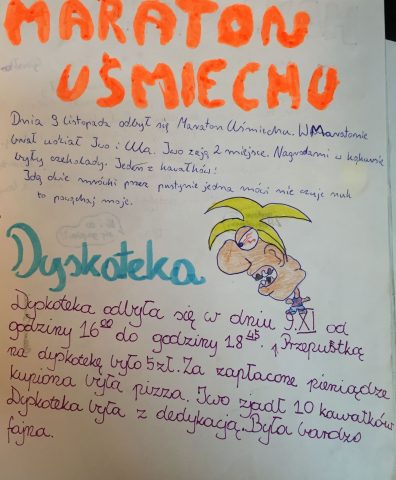 MARATON
UŚMIECHU
Dnia 9 listopada odbył się Maraton Uśmiechu. W Maratonie
brał udział Iwo i Ula. Iwo zają 2 miejsce. Nagrodami w konkursie
były czekolady. Jeden z kawałków:
Idą dwie mrówki przez pustynie jedna mówi nie czuje nuk
to poczekaj moje.
Dyskoteka
Dyskoteka odbyła się w dniu 9.XI od
godziny 16⁰⁰ do godziny 18⁴⁵. Przepustką
na dyskotekę było 5zł. Za zapłacone pieniądze
kupiona była pizza. Iwo zjadł 10 kawałków
Dyskoteka była z dedykacją. Była bardzo
fajna.